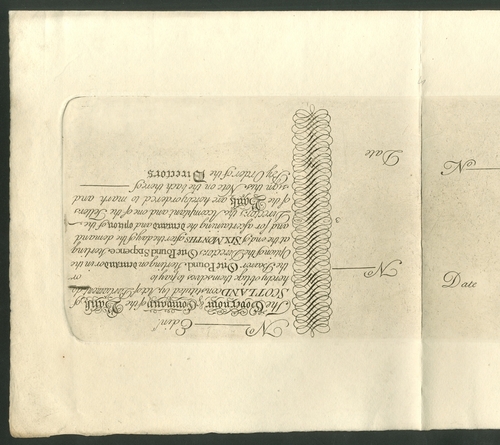 No Edinr
The Governour & Company of the Bank of
SCOTLAND constituted by Act of Parliament do
hereby oblige themselves to pay to or
the Bearer One Pound Sterling on demand or in the
Option of the Directors One Pound Sixpence Sterling
at the end of SIX MONTHS after the day of the demand
and for ascertaining the demand and option of the
Directors the Accomptant and one of the Tellers
of the Bank are hereby ordered to mark and
sign this Note on the back thereof
By Order of the Directors
No
Date
No
Date